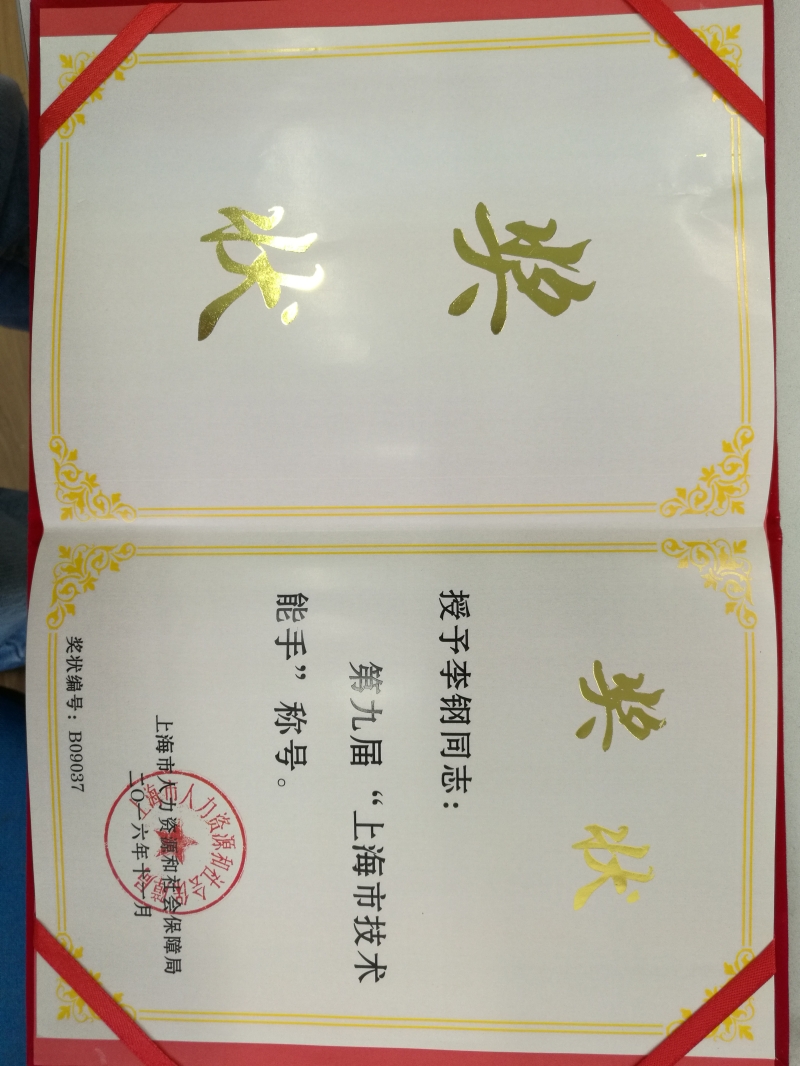 奖状
奖状
授予李钢同志：
第九届“上海市技术
能手”称号。
上海市人力资源和社会保障局
二〇一六年十一月
上海市人力资源和社会保障局
奖状编号：B09037